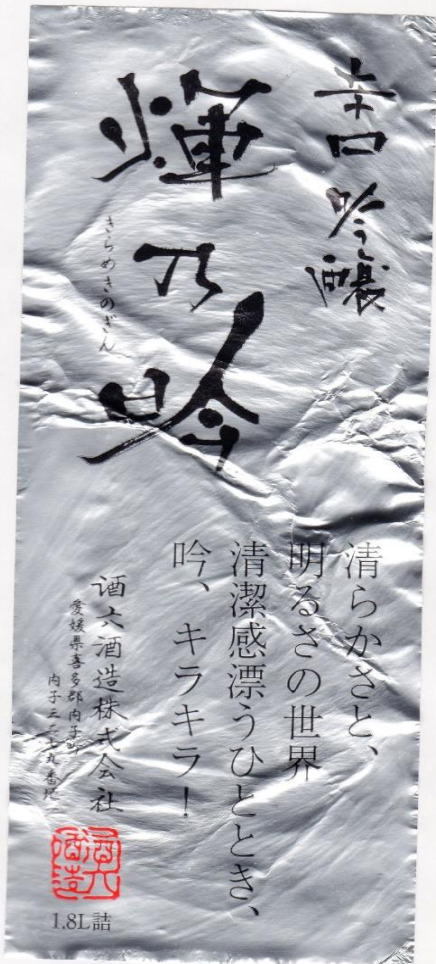 辛口吟醸
輝乃吟
きらめきのぎん
清らかさと、
明るさの世界
清潔感漂うひととき、
吟、キラキラ!
酒六酒造株式会社
愛媛県喜多郡内子町
内子三二七九番地
酒六酒造
1.8L詰